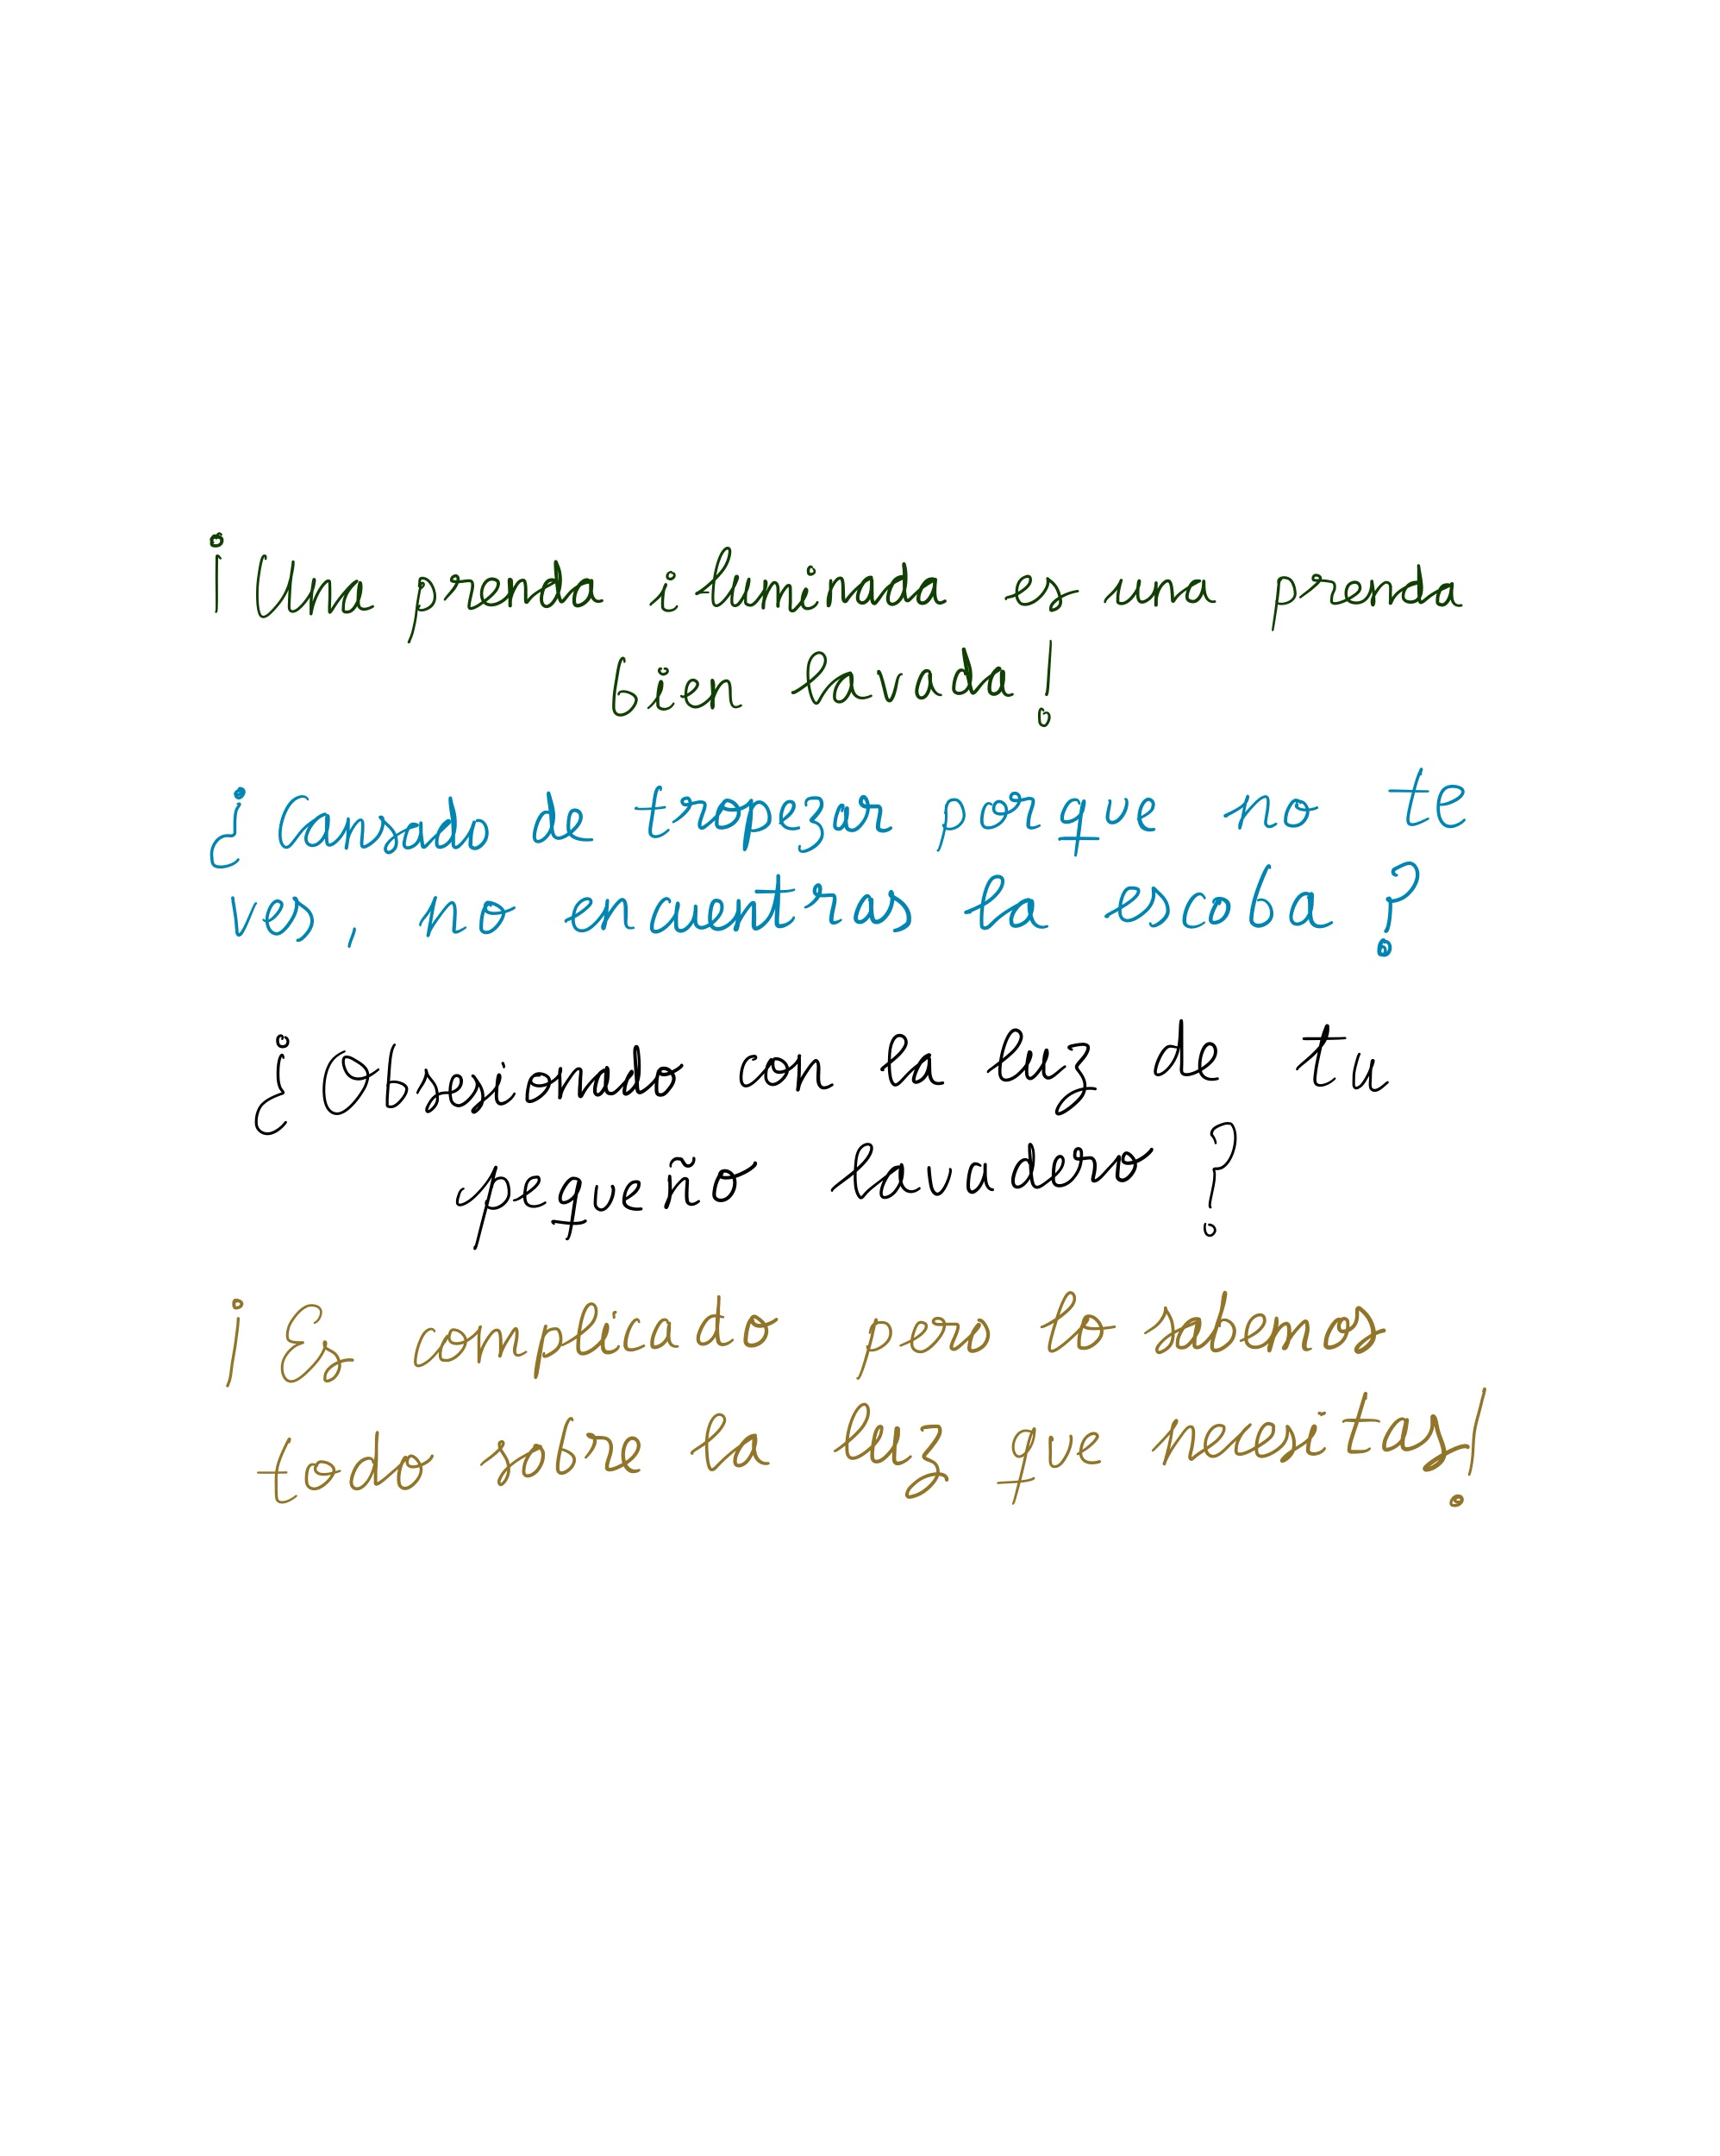 ¡Una prenda iluminada es una prenda
bien lavada!
¿Cansado de tropezar porque no te
ves, no encuentras la escoba?
¿Obsesionado con la luz de tu
pequeño lavadero?
¡Es complicado pero lo sabemos
todo sobre la luz que necesitas!